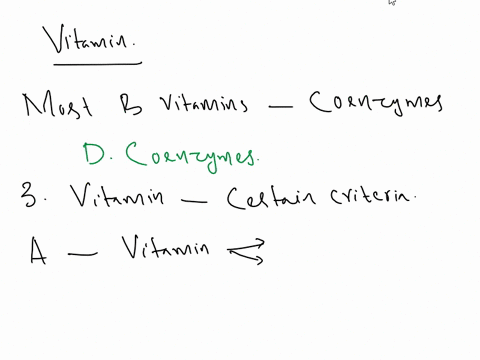 Vitamin.
Most B vitamins — Coenzymes
D. Coenzymes.
3. Vitamin — Certain criteria.
A — Vitamin